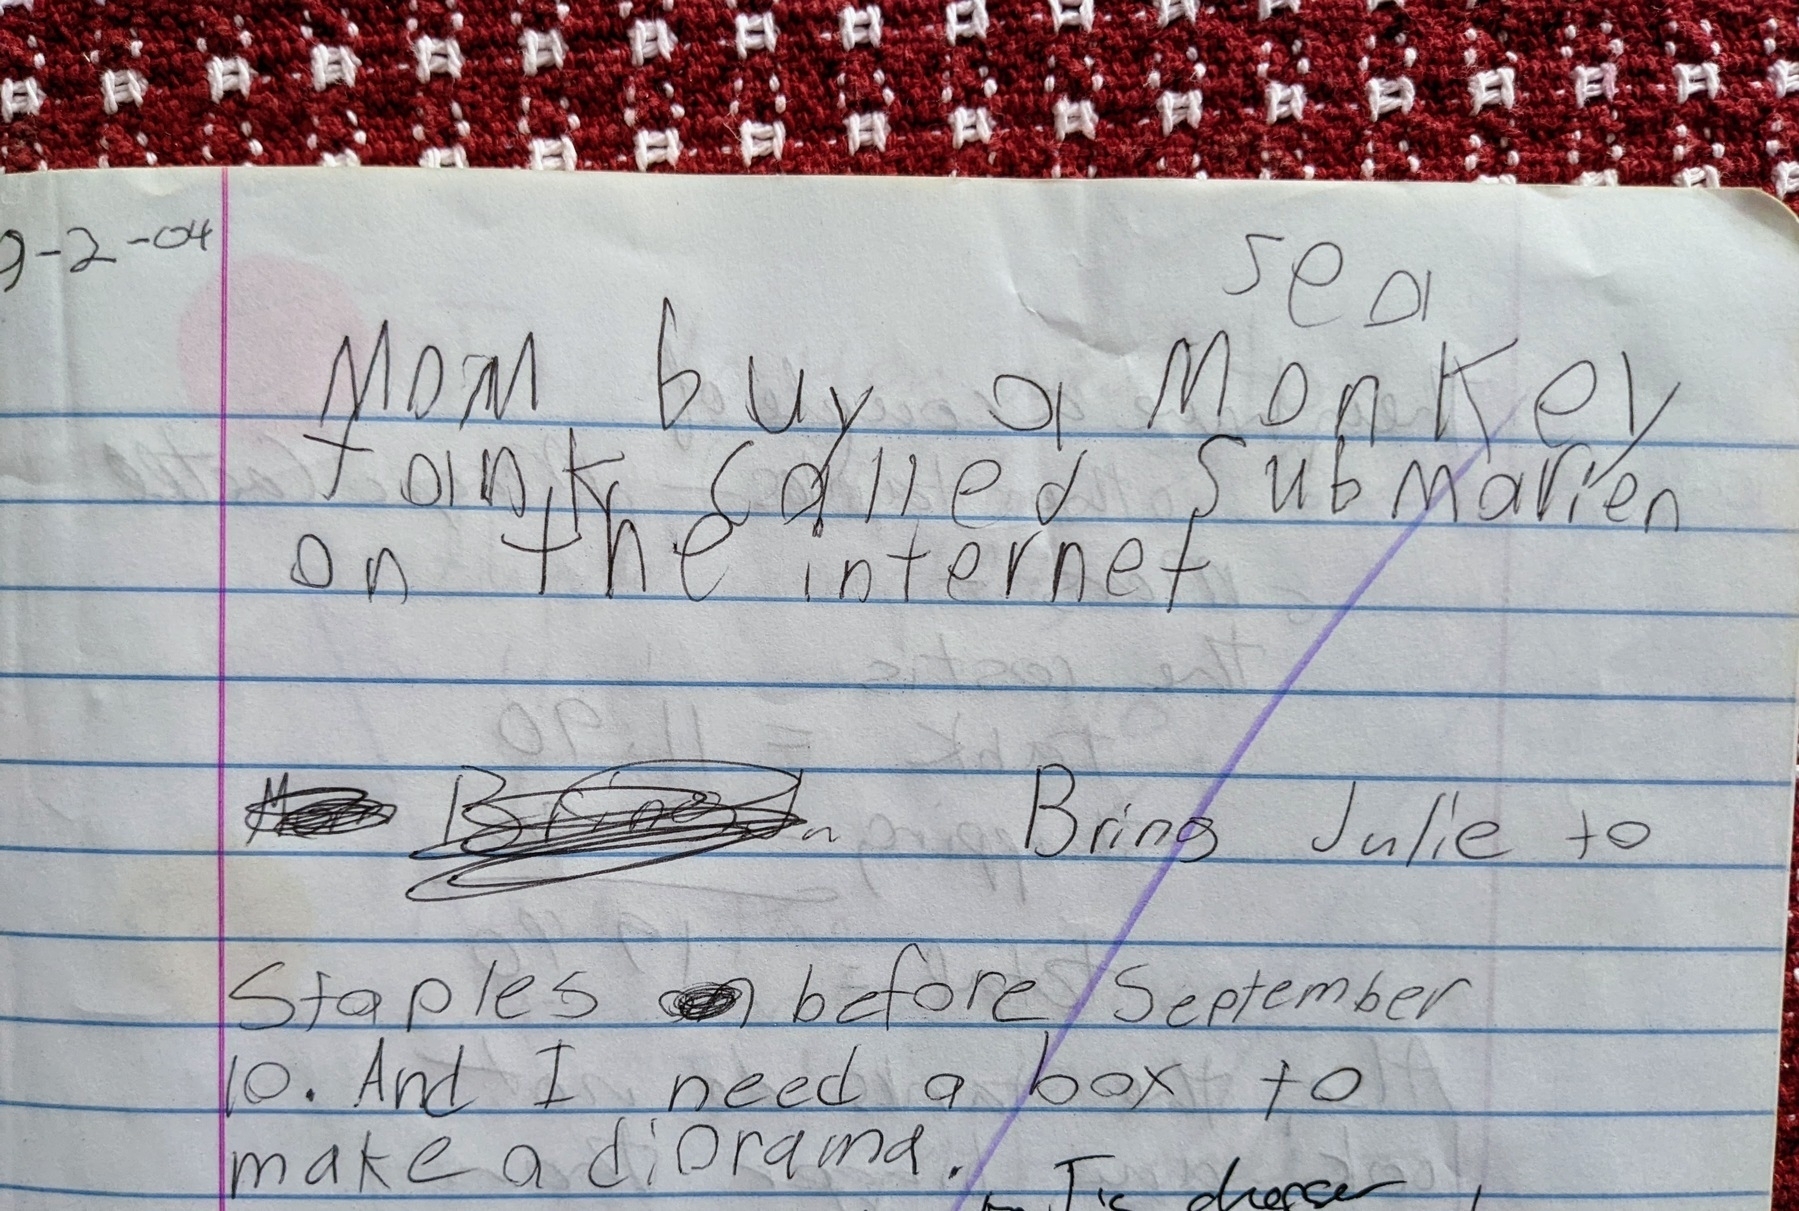 9-2-04
sea
Mom buy a Monkey
tank called Submarien
on the internet
Bring Julie to
Staples before September
10. And I need a box to
make a diorama.